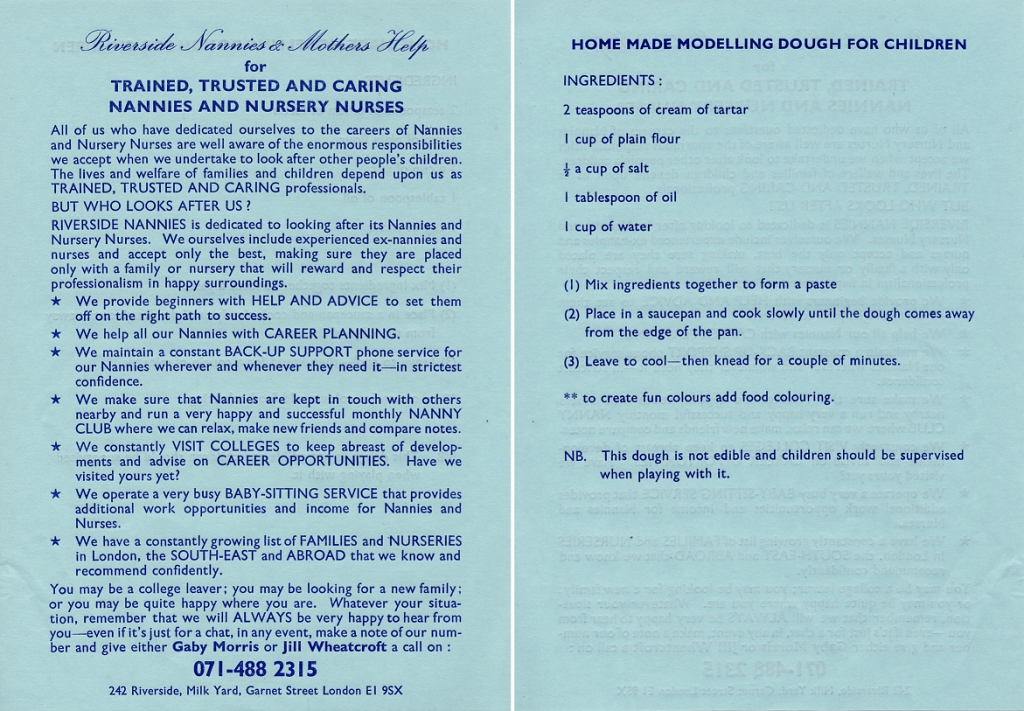 Riverside Nannies & Mothers Help
for
TRAINED, TRUSTED AND CARING
NANNIES AND NURSERY NURSES
All of us who have dedicated ourselves to the careers of Nannies
and Nursery Nurses are well aware of the enormous responsibilities
we accept when we undertake to look after other people's children.
The lives and welfare of families and children depend upon us as
TRAINED, TRUSTED AND CARING professionals.
BUT WHO LOOKS AFTER US ?
RIVERSIDE NANNIES is dedicated to looking after its Nannies and
Nursery Nurses. We ourselves include experienced ex-nannies and
nurses and accept only the best, making sure they are placed
only with a family or nursery that will reward and respect their
professionalism in happy surroundings.
★ We provide beginners with HELP AND ADVICE to set them
off on the right path to success.
★ We help all our Nannies with CAREER PLANNING.
★ We maintain a constant BACK-UP SUPPORT phone service for
our Nannies wherever and whenever they need it—in strictest
confidence.
★ We make sure that Nannies are kept in touch with others
nearby and run a very happy and successful monthly NANNY
CLUB where we can relax, make new friends and compare notes.
★ We constantly VISIT COLLEGES to keep abreast of develop-
ments and advise on CAREER OPPORTUNITIES. Have we
visited yours yet?
★ We operate a very busy BABY-SITTING SERVICE that provides
additional work opportunities and income for Nannies and
Nurses.
★ We have a constantly growing list of FAMILIES and NURSERIES
in London, the SOUTH-EAST and ABROAD that we know and
recommend confidently.
You may be a college leaver; you may be looking for a new family;
or you may be quite happy where you are. Whatever your situa-
tion, remember that we will ALWAYS be very happy to hear from
you—even if it's just for a chat, in any event, make a note of our num-
ber and give either Gaby Morris or Jill Wheatcroft a call on :
071-488 2315
242 Riverside, Milk Yard, Garnet Street London E1 9SX
HOME MADE MODELLING DOUGH FOR CHILDREN
INGREDIENTS :
2 teaspoons of cream of tartar
1 cup of plain flour
½ a cup of salt
1 tablespoon of oil
1 cup of water
(1) Mix ingredients together to form a paste
(2) Place in a saucepan and cook slowly until the dough comes away
from the edge of the pan.
(3) Leave to cool—then knead for a couple of minutes.
** to create fun colours add food colouring.
NB. This dough is not edible and children should be supervised
when playing with it.